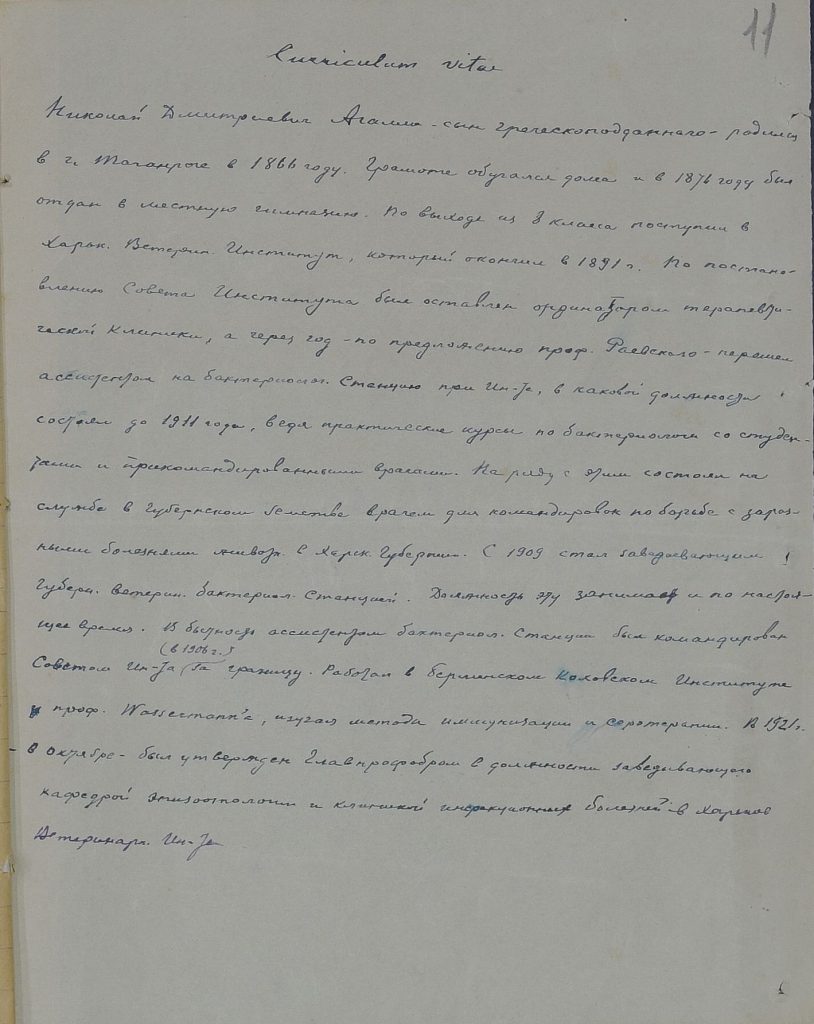 11
Curriculum vitae
Николай Дмитриевич Агалли - сын греческоподданнаго - родился
в г. Таганроге в 1866 году. Грамоте обучался дома и в 1876 году был
отдан в местную гимназию. По выходе из 8 класса поступил в
Харьк. Ветерин. Институт, который окончил в 1891 г. По постано-
влению Совета Института был оставлен ординатором терапевти-
ческой Клиники, а через год - по предложению проф. Раевского - перешел
ассистентом на бактериолог. Станцию при Ин-те, в каковой должности
состоял до 1911 года, ведя практические курсы по бактериологии со студен-
тами и прикомандированными врачами. На ряду с этим состоял на
службе в Губернском Земстве врачем для командировок по борьбе с зараз-
ными болезнями живот. в Харьк. Губернии. С 1909 стал заведывающим
Губерн. ветерин. бактериол. Станцией. Должность эту занимает и по настоя-
щее время. В бытность ассистентом бактериол. Станции был командирован
(в 1906 г.)
Советом Ин-та за границу. Работал в Берлинском Коховском Институте
у проф. Wassermann'a, изучая методы иммунизации и серотерапии. В 1921 г.
в октябре - был утвержден Главпрофобром в должности заведывающего
кафедрой эпизоотологии и клиникой инфекционных болезней в Харьков
Ветеринарн. Ин-те